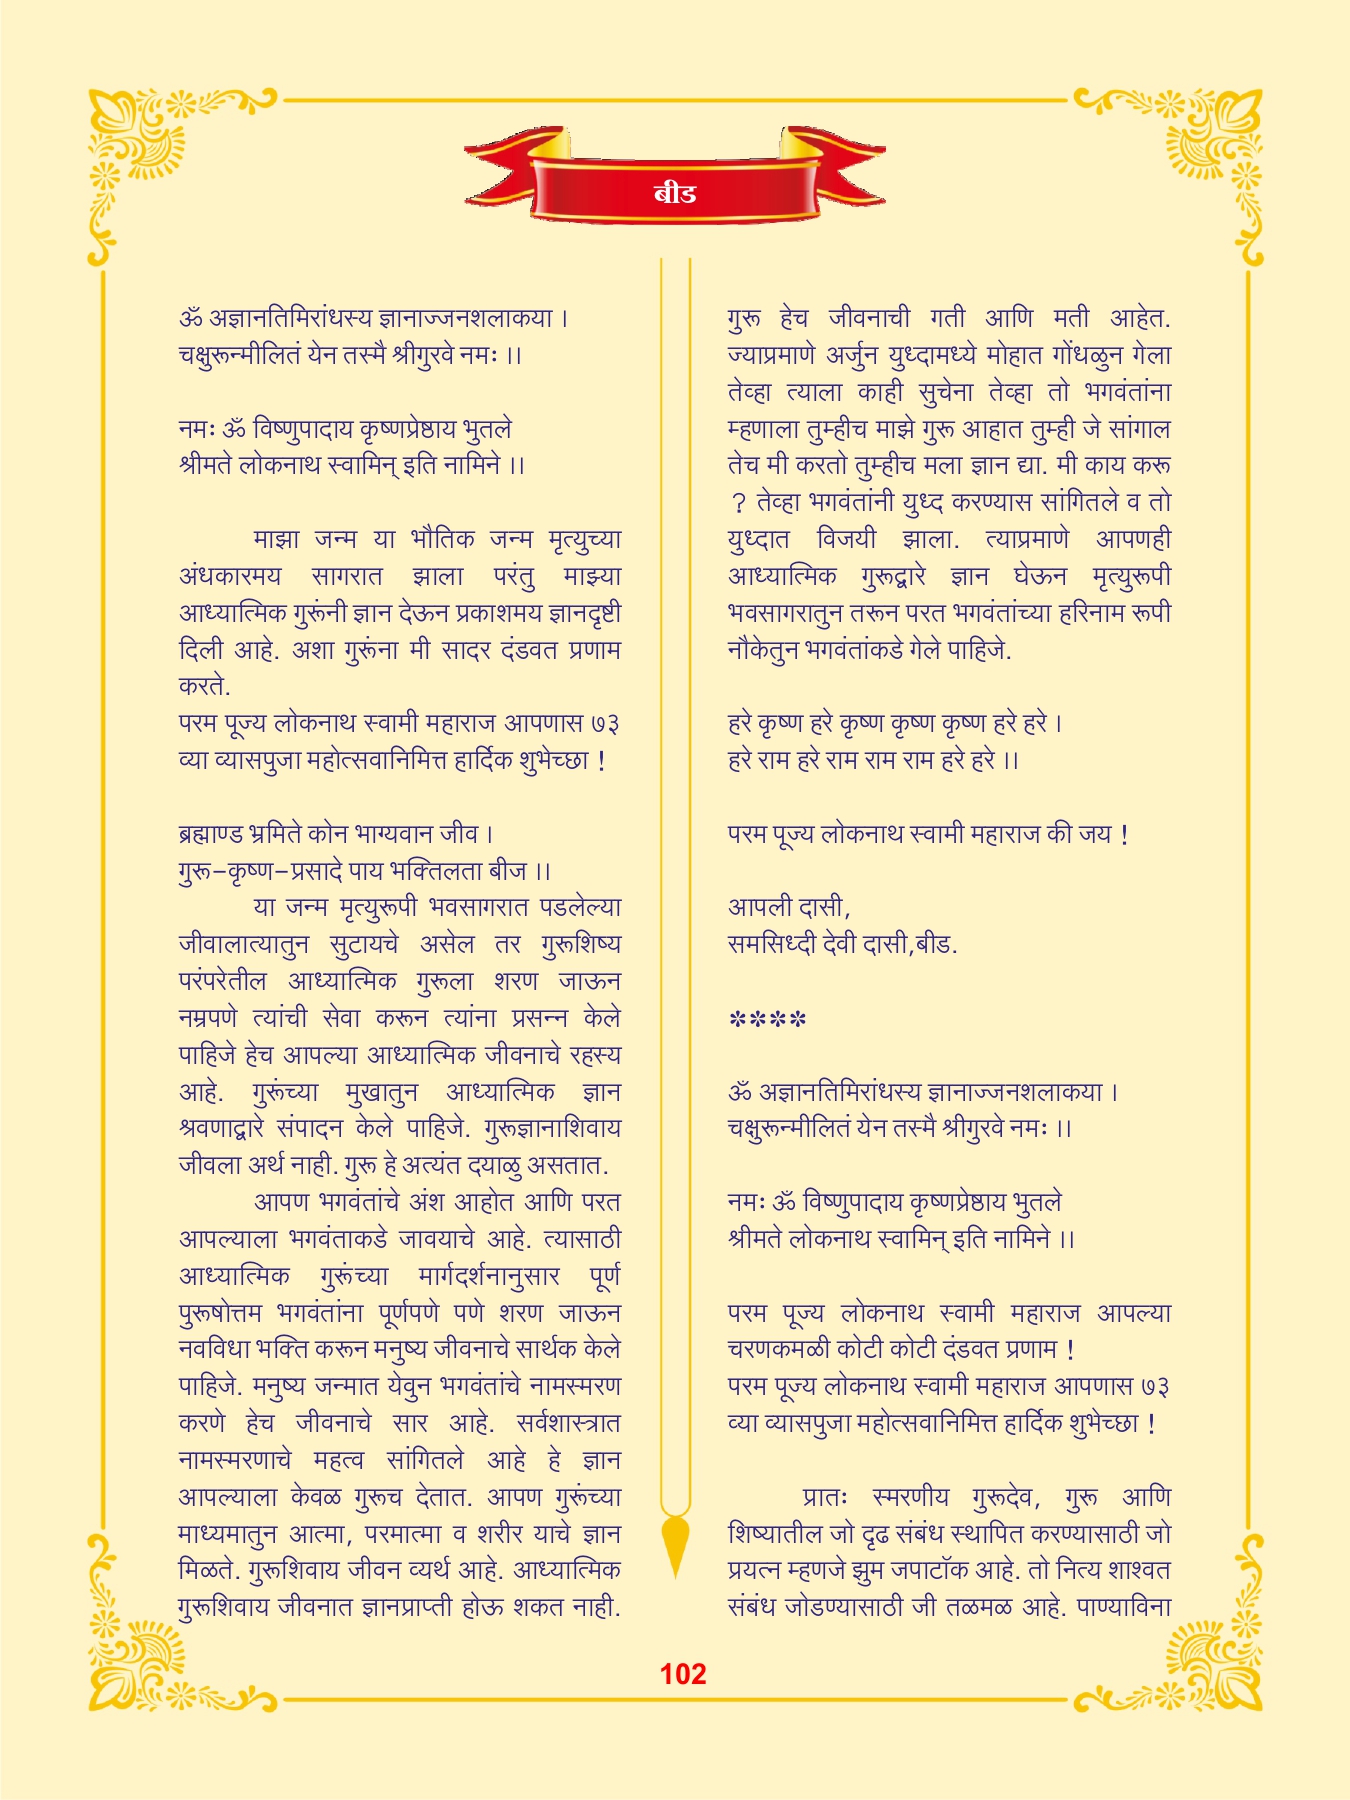 बीड
ॐ अज्ञानतिमिरांधस्य ज्ञानाज्जनशलाकया ।
चक्षुरून्मीलितं येन तस्मै श्रीगुरवे नमः ।।
नमः ॐ विष्णुपादाय कृष्णप्रेष्ठाय भुतले
श्रीमते लोकनाथ स्वामिन् इति नामिने ।।
माझा जन्म या भौतिक जन्म मृत्युच्या
अंधकारमय सागरात झाला परंतु माझ्या
आध्यात्मिक गुरूंनी ज्ञान देऊन प्रकाशमय ज्ञानदृष्टी
दिली आहे. अशा गुरूंना मी सादर दंडवत प्रणाम
करते.
परम पूज्य लोकनाथ स्वामी महाराज आपणास ७३
व्या व्यासपुजा महोत्सवानिमित्त हार्दिक शुभेच्छा !
ब्रह्माण्ड भ्रमिते कोन भाग्यवान जीव ।
गुरू-कृष्ण-प्रसादे पाय भक्तिलता बीज ।।
या जन्म मृत्युरूपी भवसागरात पडलेल्या
जीवालात्यातुन सुटायचे असेल तर गुरूशिष्य
परंपरेतील आध्यात्मिक गुरूला शरण जाऊन
नम्रपणे त्यांची सेवा करून त्यांना प्रसन्न केले
पाहिजे हेच आपल्या आध्यात्मिक जीवनाचे रहस्य
आहे. गुरूंच्या मुखातुन आध्यात्मिक ज्ञान
श्रवणाद्वारे संपादन केले पाहिजे. गुरूज्ञानाशिवाय
जीवला अर्थ नाही. गुरू हे अत्यंत दयाळु असतात.
आपण भगवंतांचे अंश आहोत आणि परत
आपल्याला भगवंताकडे जावयाचे आहे. त्यासाठी
आध्यात्मिक गुरूंच्या मार्गदर्शनानुसार पूर्ण
पुरूषोत्तम भगवंतांना पूर्णपणे पणे शरण जाऊन
नवविधा भक्ति करून मनुष्य जीवनाचे सार्थक केले
पाहिजे. मनुष्य जन्मात येवुन भगवंतांचे नामस्मरण
करणे हेच जीवनाचे सार आहे. सर्वशास्त्रात
नामस्मरणाचे महत्व सांगितले आहे हे ज्ञान
आपल्याला केवळ गुरूच देतात. आपण गुरूंच्या
माध्यमातुन आत्मा, परमात्मा व शरीर याचे ज्ञान
मिळते. गुरूशिवाय जीवन व्यर्थ आहे. आध्यात्मिक
गुरूशिवाय जीवनात ज्ञानप्राप्ती होऊ शकत नाही.
गुरू हेच जीवनाची गती आणि मती आहेत.
ज्याप्रमाणे अर्जुन युध्दामध्ये मोहात गोंधळुन गेला
तेव्हा त्याला काही सुचेना तेव्हा तो भगवंतांना
म्हणाला तुम्हीच माझे गुरू आहात तुम्ही जे सांगाल
तेच मी करतो तुम्हीच मला ज्ञान द्या. मी काय करू
? तेव्हा भगवंतांनी युध्द करण्यास सांगितले व तो
युध्दात विजयी झाला. त्याप्रमाणे आपणही
आध्यात्मिक गुरूद्वारे ज्ञान घेऊन मृत्युरूपी
भवसागरातुन तरून परत भगवंतांच्या हरिनाम रूपी
नौकेतुन भगवंतांकडे गेले पाहिजे.
हरे कृष्ण हरे कृष्ण कृष्ण कृष्ण हरे हरे ।
हरे राम हरे राम राम राम हरे हरे ।।
परम पूज्य लोकनाथ स्वामी महाराज की जय !
आपली दासी,
समसिध्दी देवी दासी,बीड.
****
ॐ अज्ञानतिमिरांधस्य ज्ञानाज्जनशलाकया ।
चक्षुरून्मीलितं येन तस्मै श्रीगुरवे नमः ।।
नमः ॐ विष्णुपादाय कृष्णप्रेष्ठाय भुतले
श्रीमते लोकनाथ स्वामिन् इति नामिने ।।
परम पूज्य लोकनाथ स्वामी महाराज आपल्या
चरणकमळी कोटी कोटी दंडवत प्रणाम !
परम पूज्य लोकनाथ स्वामी महाराज आपणास ७३
व्या व्यासपुजा महोत्सवानिमित्त हार्दिक शुभेच्छा !
प्रातः स्मरणीय गुरूदेव, गुरू आणि
शिष्यातील जो दृढ संबंध स्थापित करण्यासाठी जो
प्रयत्न म्हणजे झुम जपाटॉक आहे. तो नित्य शाश्वत
संबंध जोडण्यासाठी जी तळमळ आहे. पाण्याविना
102